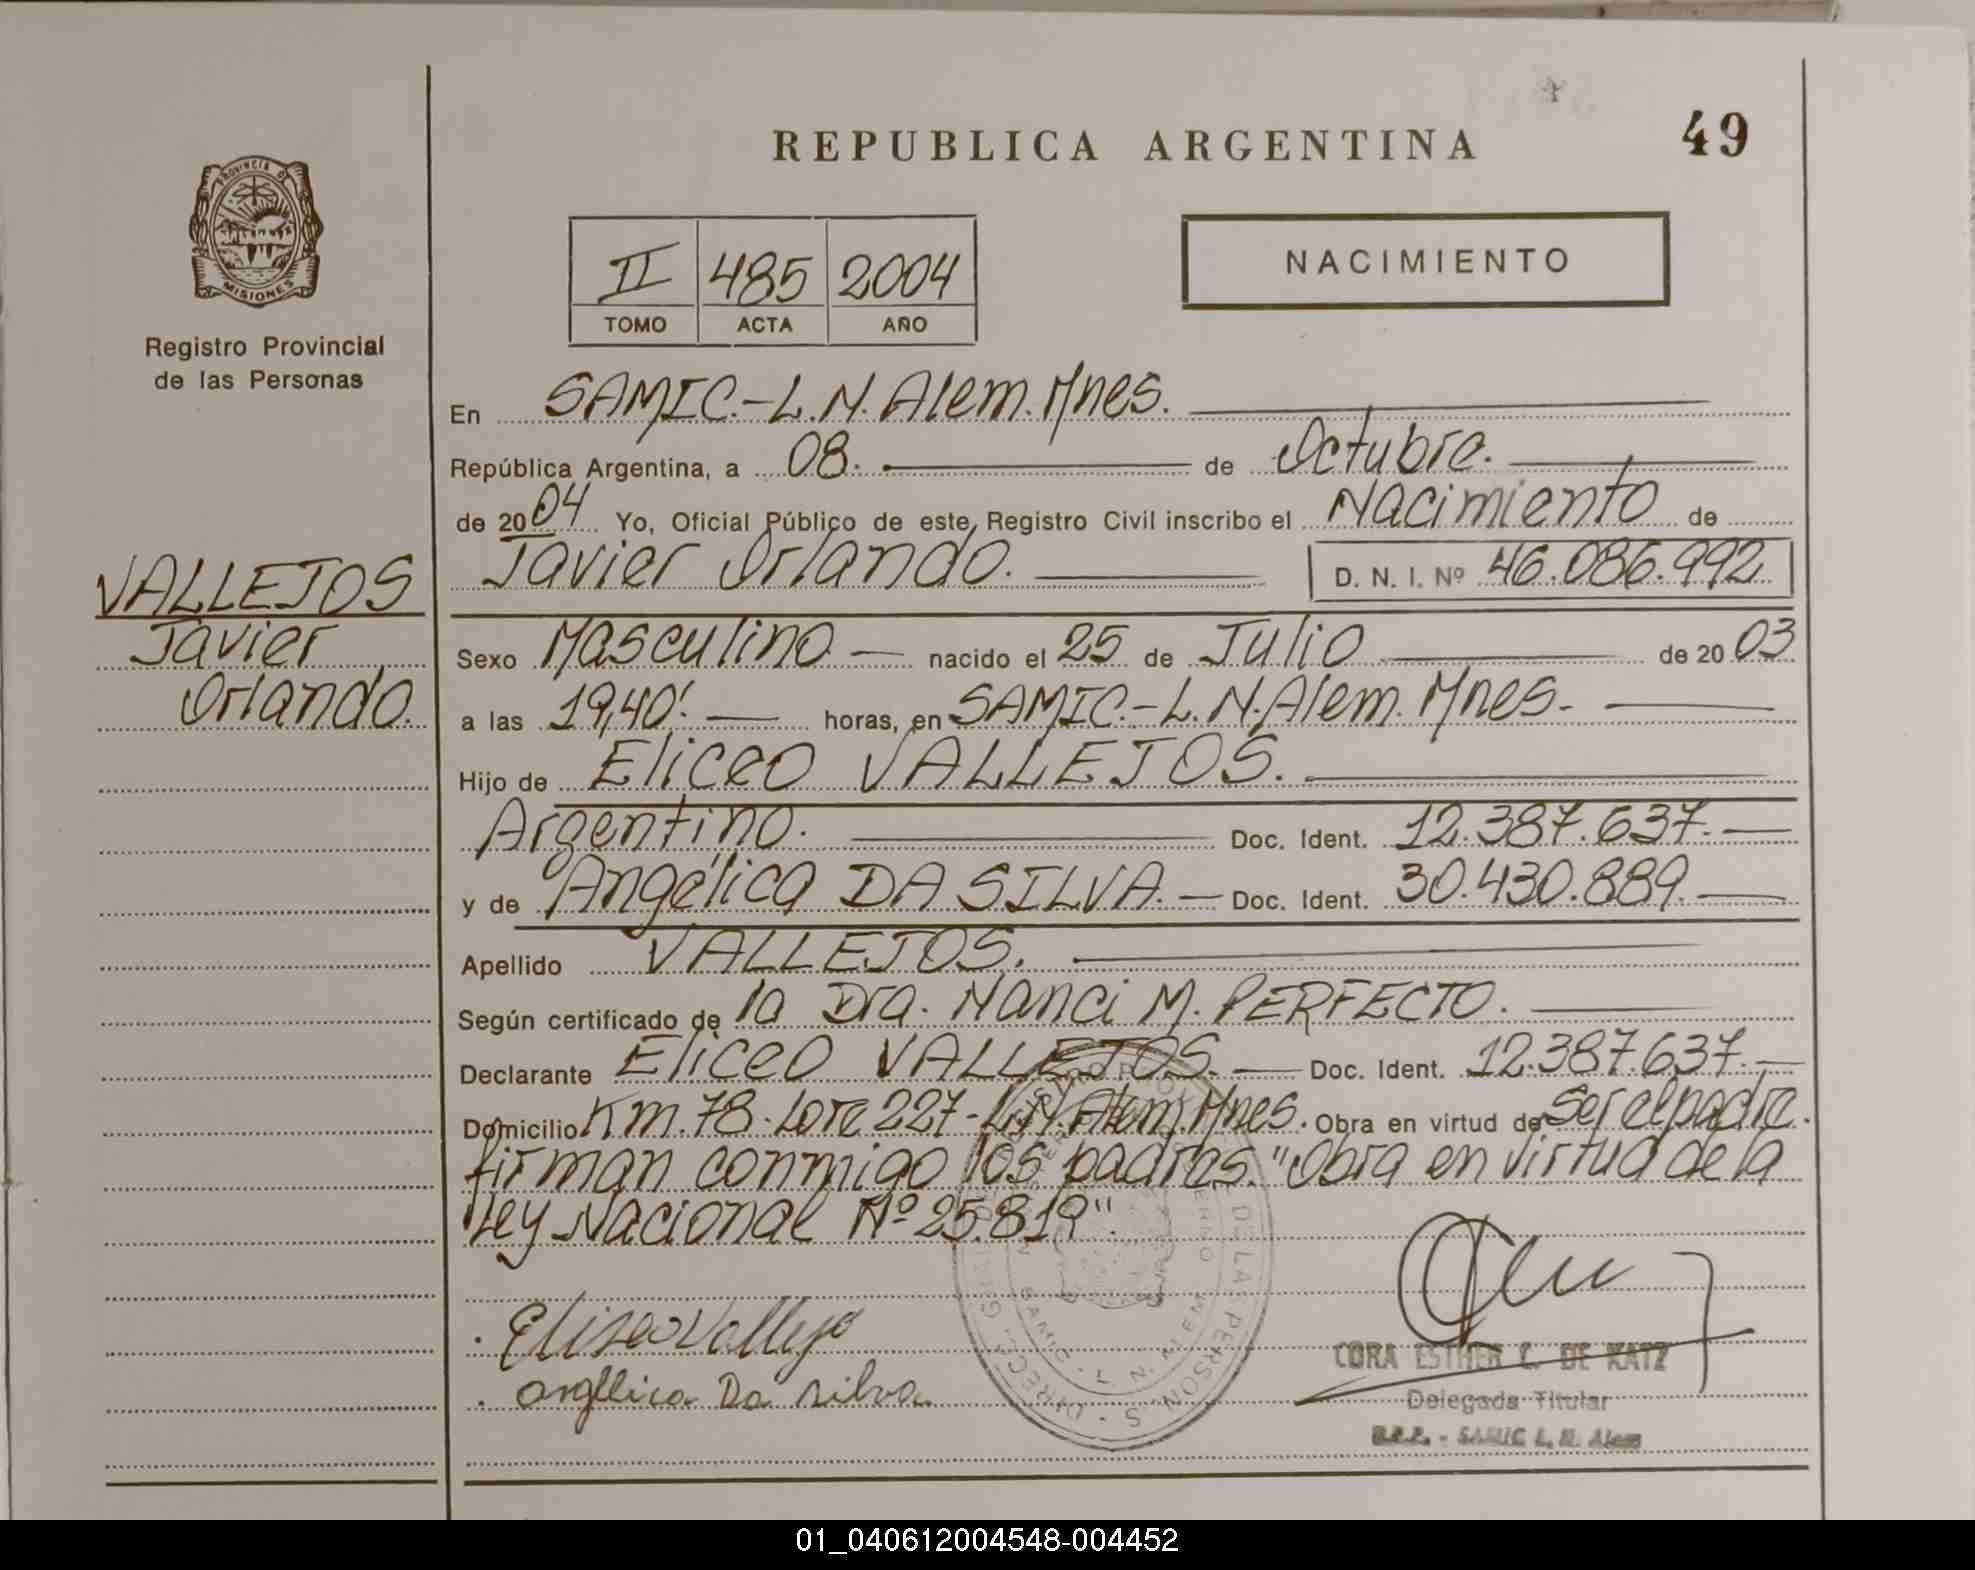 REPUBLICA ARGENTINA
49
PROVINCIA DE
MISIONES
Registro Provincial
de las Personas
II 485 2004
TOMO ACTA AÑO
NACIMIENTO
En SAMIC.-L.N.Alem.Mnes.
República Argentina, a 08. de Octubre.
de 2004 Yo, Oficial Público de este Registro Civil inscribo el Nacimiento de
Javier Orlando. D. N. I. Nº 46.086.992
VALLEJOS
Javier
Orlando.
Sexo Masculino nacido el 25 de Julio de 2003
a las 19,40'. horas, en SAMIC.-L.N.Alem.Mnes.-
Hijo de Eliceo VALLEJOS.
Argentino. Doc. Ident. 12.387.637.-
y de Angélica DA SILVA.- Doc. Ident. 30.430.889.-
Apellido VALLEJOS.
Según certificado de la Dra. Nanci M. PERFECTO.
Declarante Eliceo VALLEJOS.- Doc. Ident. 12.387.637.-
Domicilio Km.78.Lote 227-L.N.Alem.Mnes. Obra en virtud de ser el padre.
firman conmigo los padres."Obra en virtud de la
Ley Nacional Nº 25.819".
Eliseo Vallejo
Angélica Da silva
CORA ESTHER C. DE KATZ
Delegada Titular
R.P.P. - SAMIC L. N. Alem
01_040612004548-004452